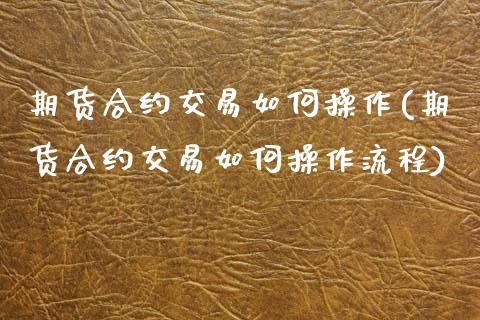 期货合约交易如何操作(期
货合约交易如何操作流程)